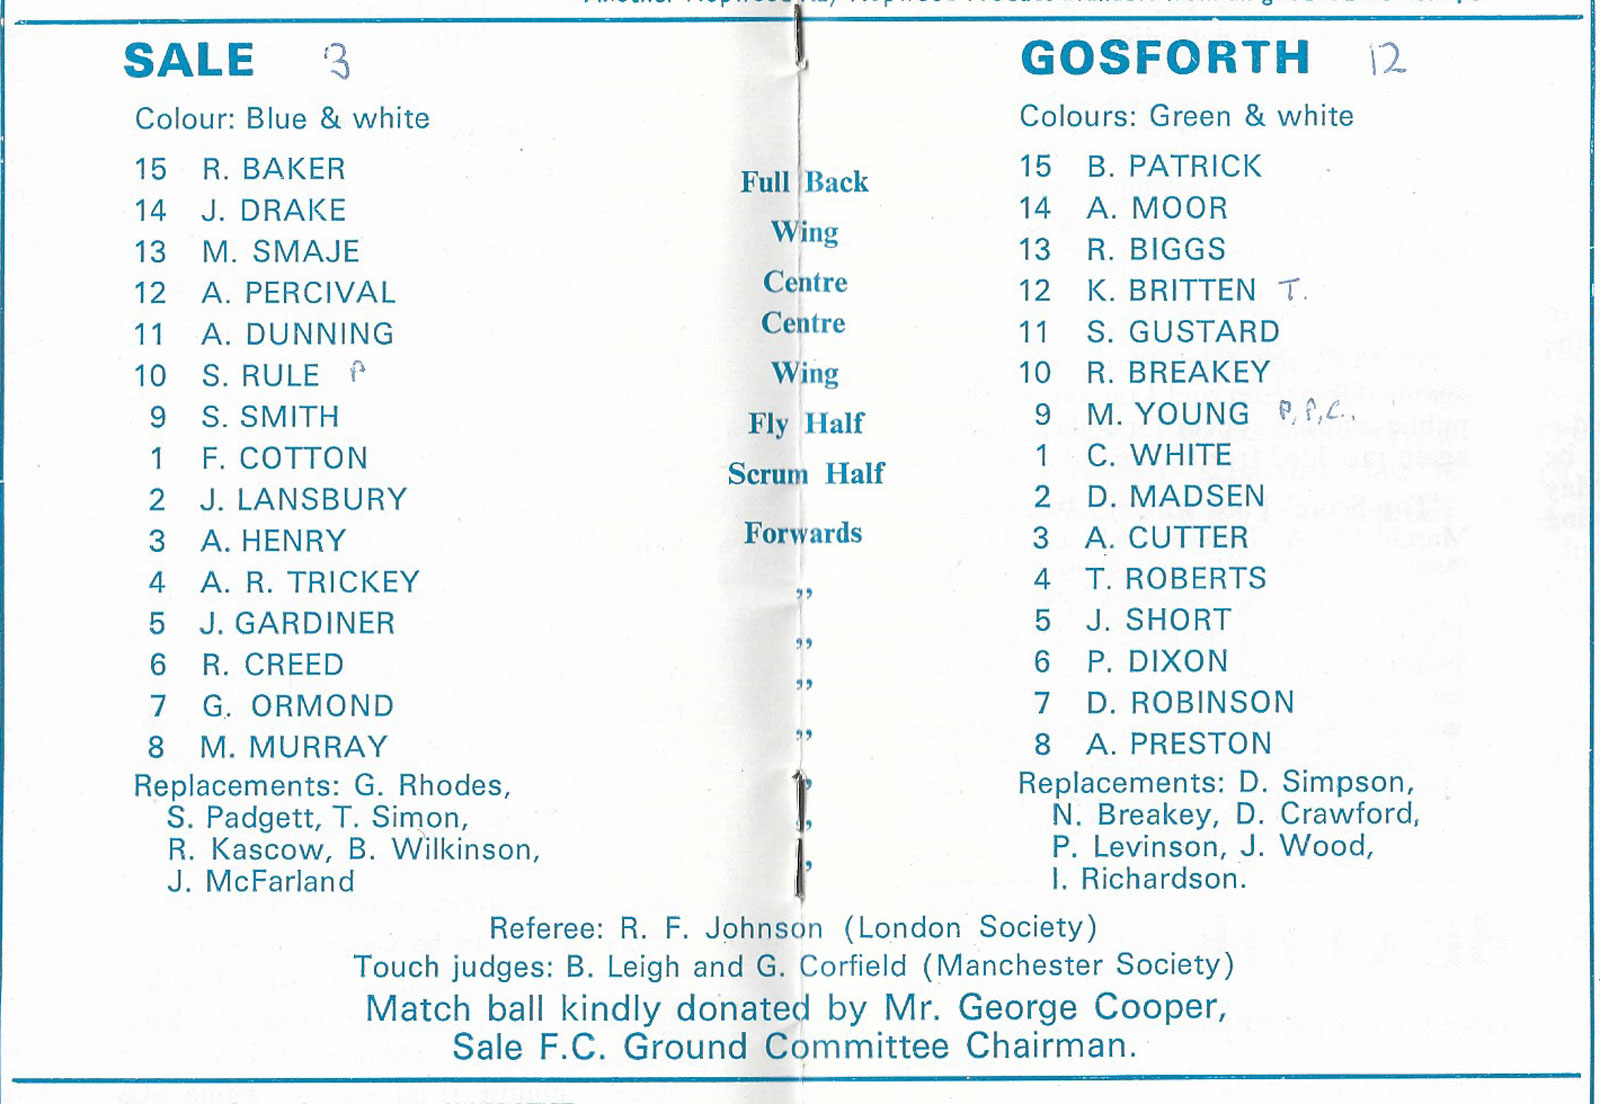 SALE 3
Colour: Blue & white
15 R. BAKER
14 J. DRAKE
13 M. SMAJE
12 A. PERCIVAL
11 A. DUNNING
10 S. RULE P
9 S. SMITH
1 F. COTTON
2 J. LANSBURY
3 A. HENRY
4 A. R. TRICKEY
5 J. GARDINER
6 R. CREED
7 G. ORMOND
8 M. MURRAY
Replacements: G. Rhodes,
S. Padgett, T. Simon,
R. Kascow, B. Wilkinson,
J. McFarland
Full Back
Wing
Centre
Centre
Wing
Fly Half
Scrum Half
Forwards
,,
,,
,,
,,
,
,,
,
GOSFORTH 12
Colours: Green & white
15 B. PATRICK
14 A. MOOR
13 R. BIGGS
12 K. BRITTEN T.
11 S. GUSTARD
10 R. BREAKEY
9 M. YOUNG P,P,C,.
1 C. WHITE
2 D. MADSEN
3 A. CUTTER
4 T. ROBERTS
5 J. SHORT
6 P. DIXON
7 D. ROBINSON
8 A. PRESTON
Replacements: D. Simpson,
N. Breakey, D. Crawford,
P. Levinson, J. Wood,
I. Richardson.
Referee: R. F. Johnson (London Society)
Touch judges: B. Leigh and G. Corfield (Manchester Society)
Match ball kindly donated by Mr. George Cooper,
Sale F.C. Ground Committee Chairman.